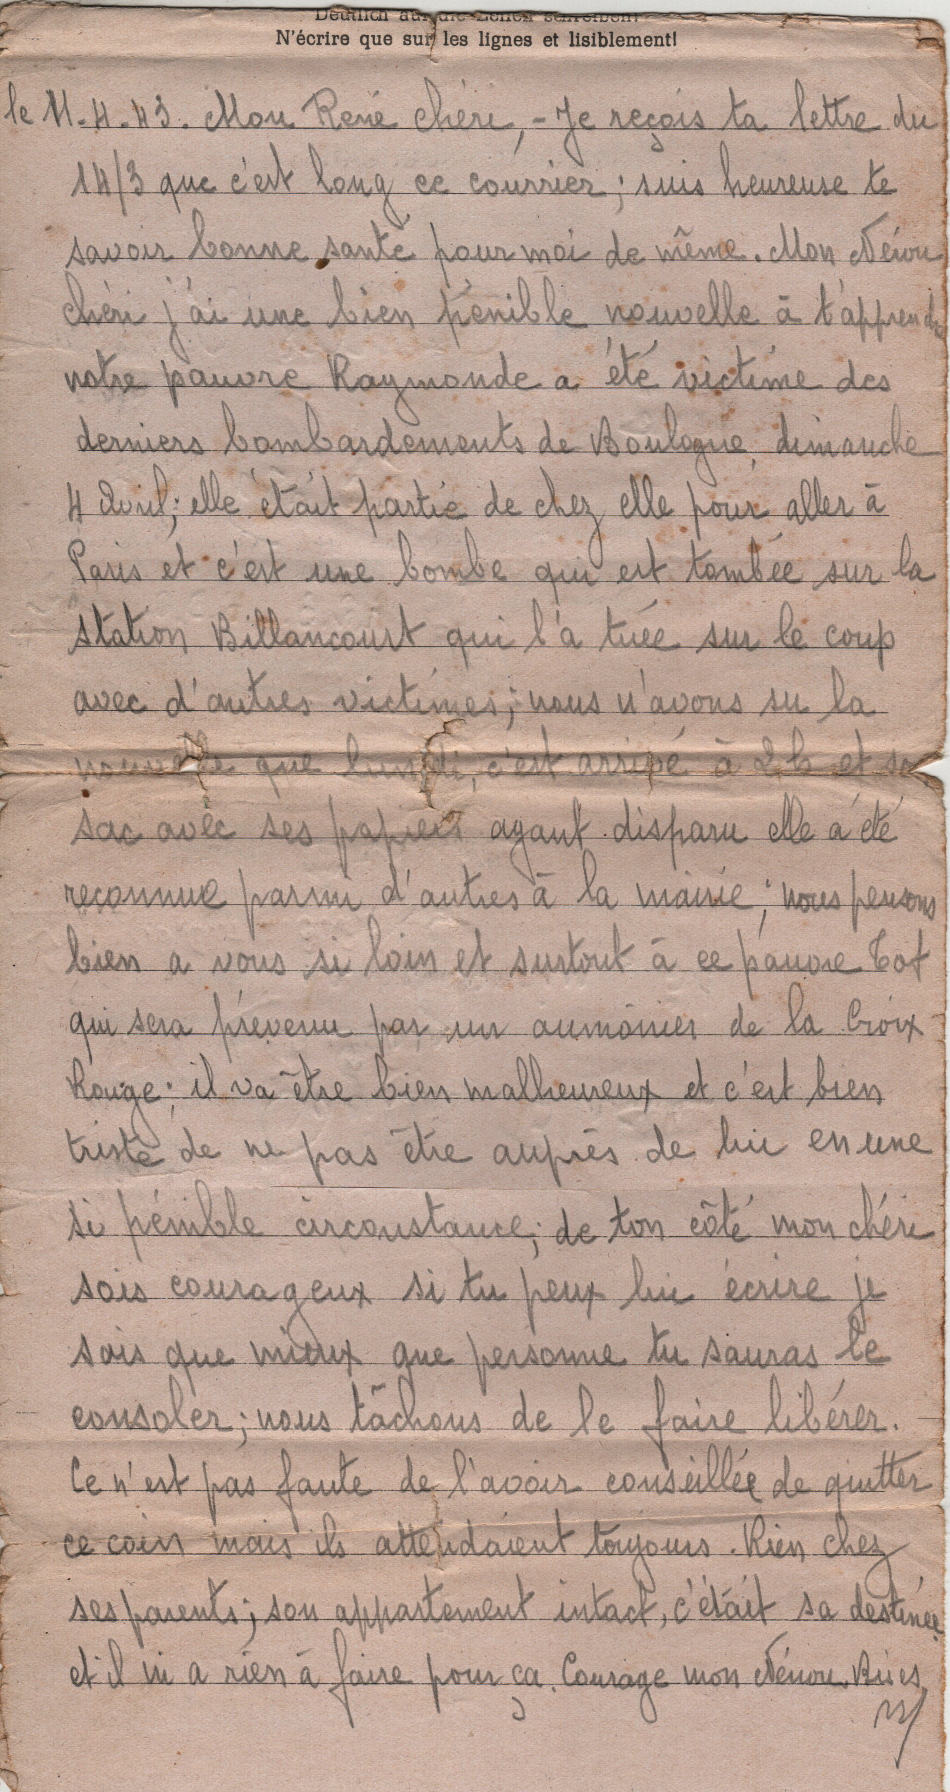 Deutlich auf die Zeilen schreiben!
N'écrire que sur les lignes et lisiblement!
le 11-4-43. Mon René chéri, - Je reçois ta lettre du
14/3 que c'est long ce courrier; suis heureuse te
savoir bonne santé pour moi de même. Mon Nénou
chéri j'ai une bien pénible nouvelle à t'apprendre
notre pauvre Raymonde a été victime des
derniers bombardements de Boulogne, dimanche
4 Avril; elle était partie de chez elle pour aller à
Paris et c'est une bombe qui est tombée sur la
station Billancourt qui l'a tuée sur le coup
avec d'autres victimes; nous n'avons su la
nouvelle que lundi, c'est arrivé à 2h et son
sac avec ses papiers ayant disparu elle a été
reconnue parmi d'autres à la mairie; nous pensons
bien a vous si loin et surtout à ce pauvre Tot
qui sera prévenu par un aumônier de la Croix
Rouge; il va être bien malheureux et c'est bien
triste de ne pas être auprès de lui en une
si pénible circonstance; de ton côté mon chéri
sois courageux si tu peux lui écrire je
sais que mieux que personne tu sauras le
consoler; nous tâchons de le faire libérer.
Ce n'est pas faute de l'avoir conseillée de quitter
ce coin mais ils attendaient toujours. Rien chez
ses parents; son appartement intact, c'était sa destinée
et il n'y a rien à faire pour ça. Courage mon Nénou. Bises